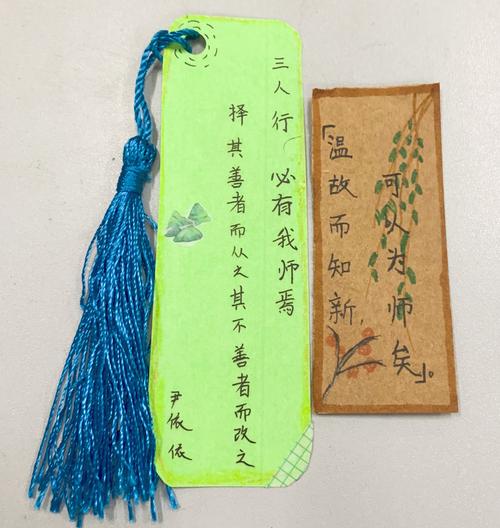 三人行必有我师焉
择其善者而从之其不善者而改之
尹依依
「温故而知新,
可以为师矣」。